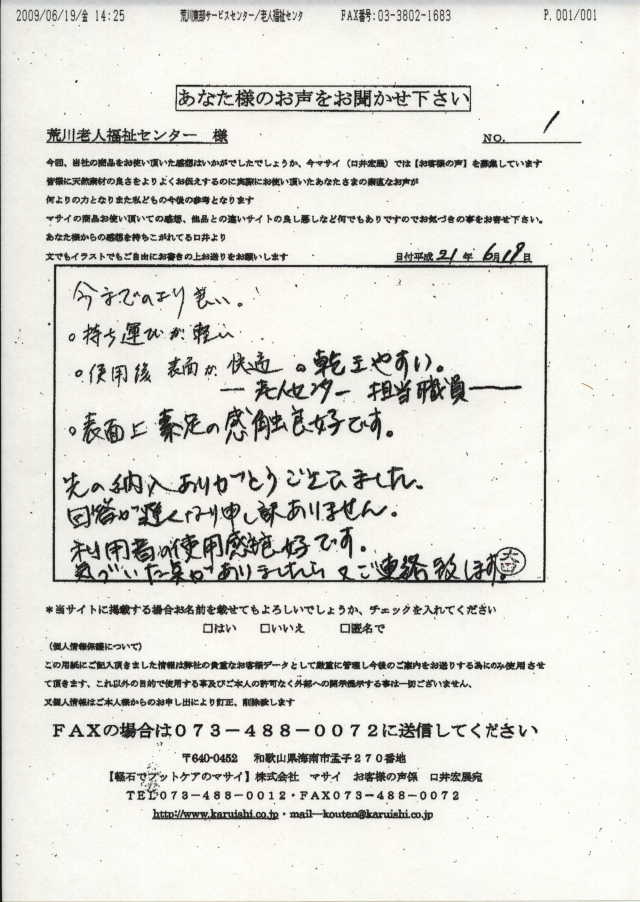 2009/06/19/金 14:25 荒川東部サービスセンター/老人福祉センタ FAX番号:03-3802-1683 P.001/001
あなた様のお声をお聞かせ下さい
荒川老人福祉センター 様 NO. 1
今回、当社の商品をお使い頂いた感想はいかがでしたでしょうか、今マサイ（口井宏展）では【お客様の声】を募集しています
皆様に天然素材の良さをよりよくお伝えするのに実際にお使い頂いたあなたさまの素直なお声が
何よりの力となりまた私どもの今後の参考となります
マサイの商品お使い頂いての感想、他品との違いサイトの良し悪しなど何でもありですのでお気づきの事をお寄せ下さい。
あなた様からの感想を持ちこがれてる口井より
文でもイラストでもご自由にお書きの上お送りをお願いします 日付平成 21 年 6月 19 日
今までのより良い。
○持ち運びが軽い
○使用後 表面が 快適 ○乾きやすい。
―老人センター 担当職員―
○表面に素足の感触良好です。
先の納入ありがとうございました。
回答が遅くなり申し訳ありません。
利用者の使用感良好です。
気づいた点がありましたら又ご連絡致します。
*当サイトに掲載する場合お名前を載せてもよろしいでしょうか、チェックを入れてください
□はい □いいえ □匿名で
（個人情報保護について）
この用紙にご記入頂きました情報は弊社の貴重なお客様データとして厳重に管理し今後のご案内をお送りする為にのみ使用させ
て頂きます、これ以外の目的で使用する事及びご本人の許可なく外部への開示提示する事は一切ございません、
又個人情報はご本人様からのお申し出により訂正、削除致します
ＦＡＸの場合は０７３－４８８－００７２に送信してください
〒640-0452 和歌山県海南市孟子２７０番地
【軽石でフットケアのマサイ】株式会社 マサイ お客様の声係 口井宏展宛
ＴＥＬ０７３－４８８－００１２・ＦＡＸ０７３－４８８－００７２
http://www.karuishi.co.jp・mail―kouten@karuishi.co.jp